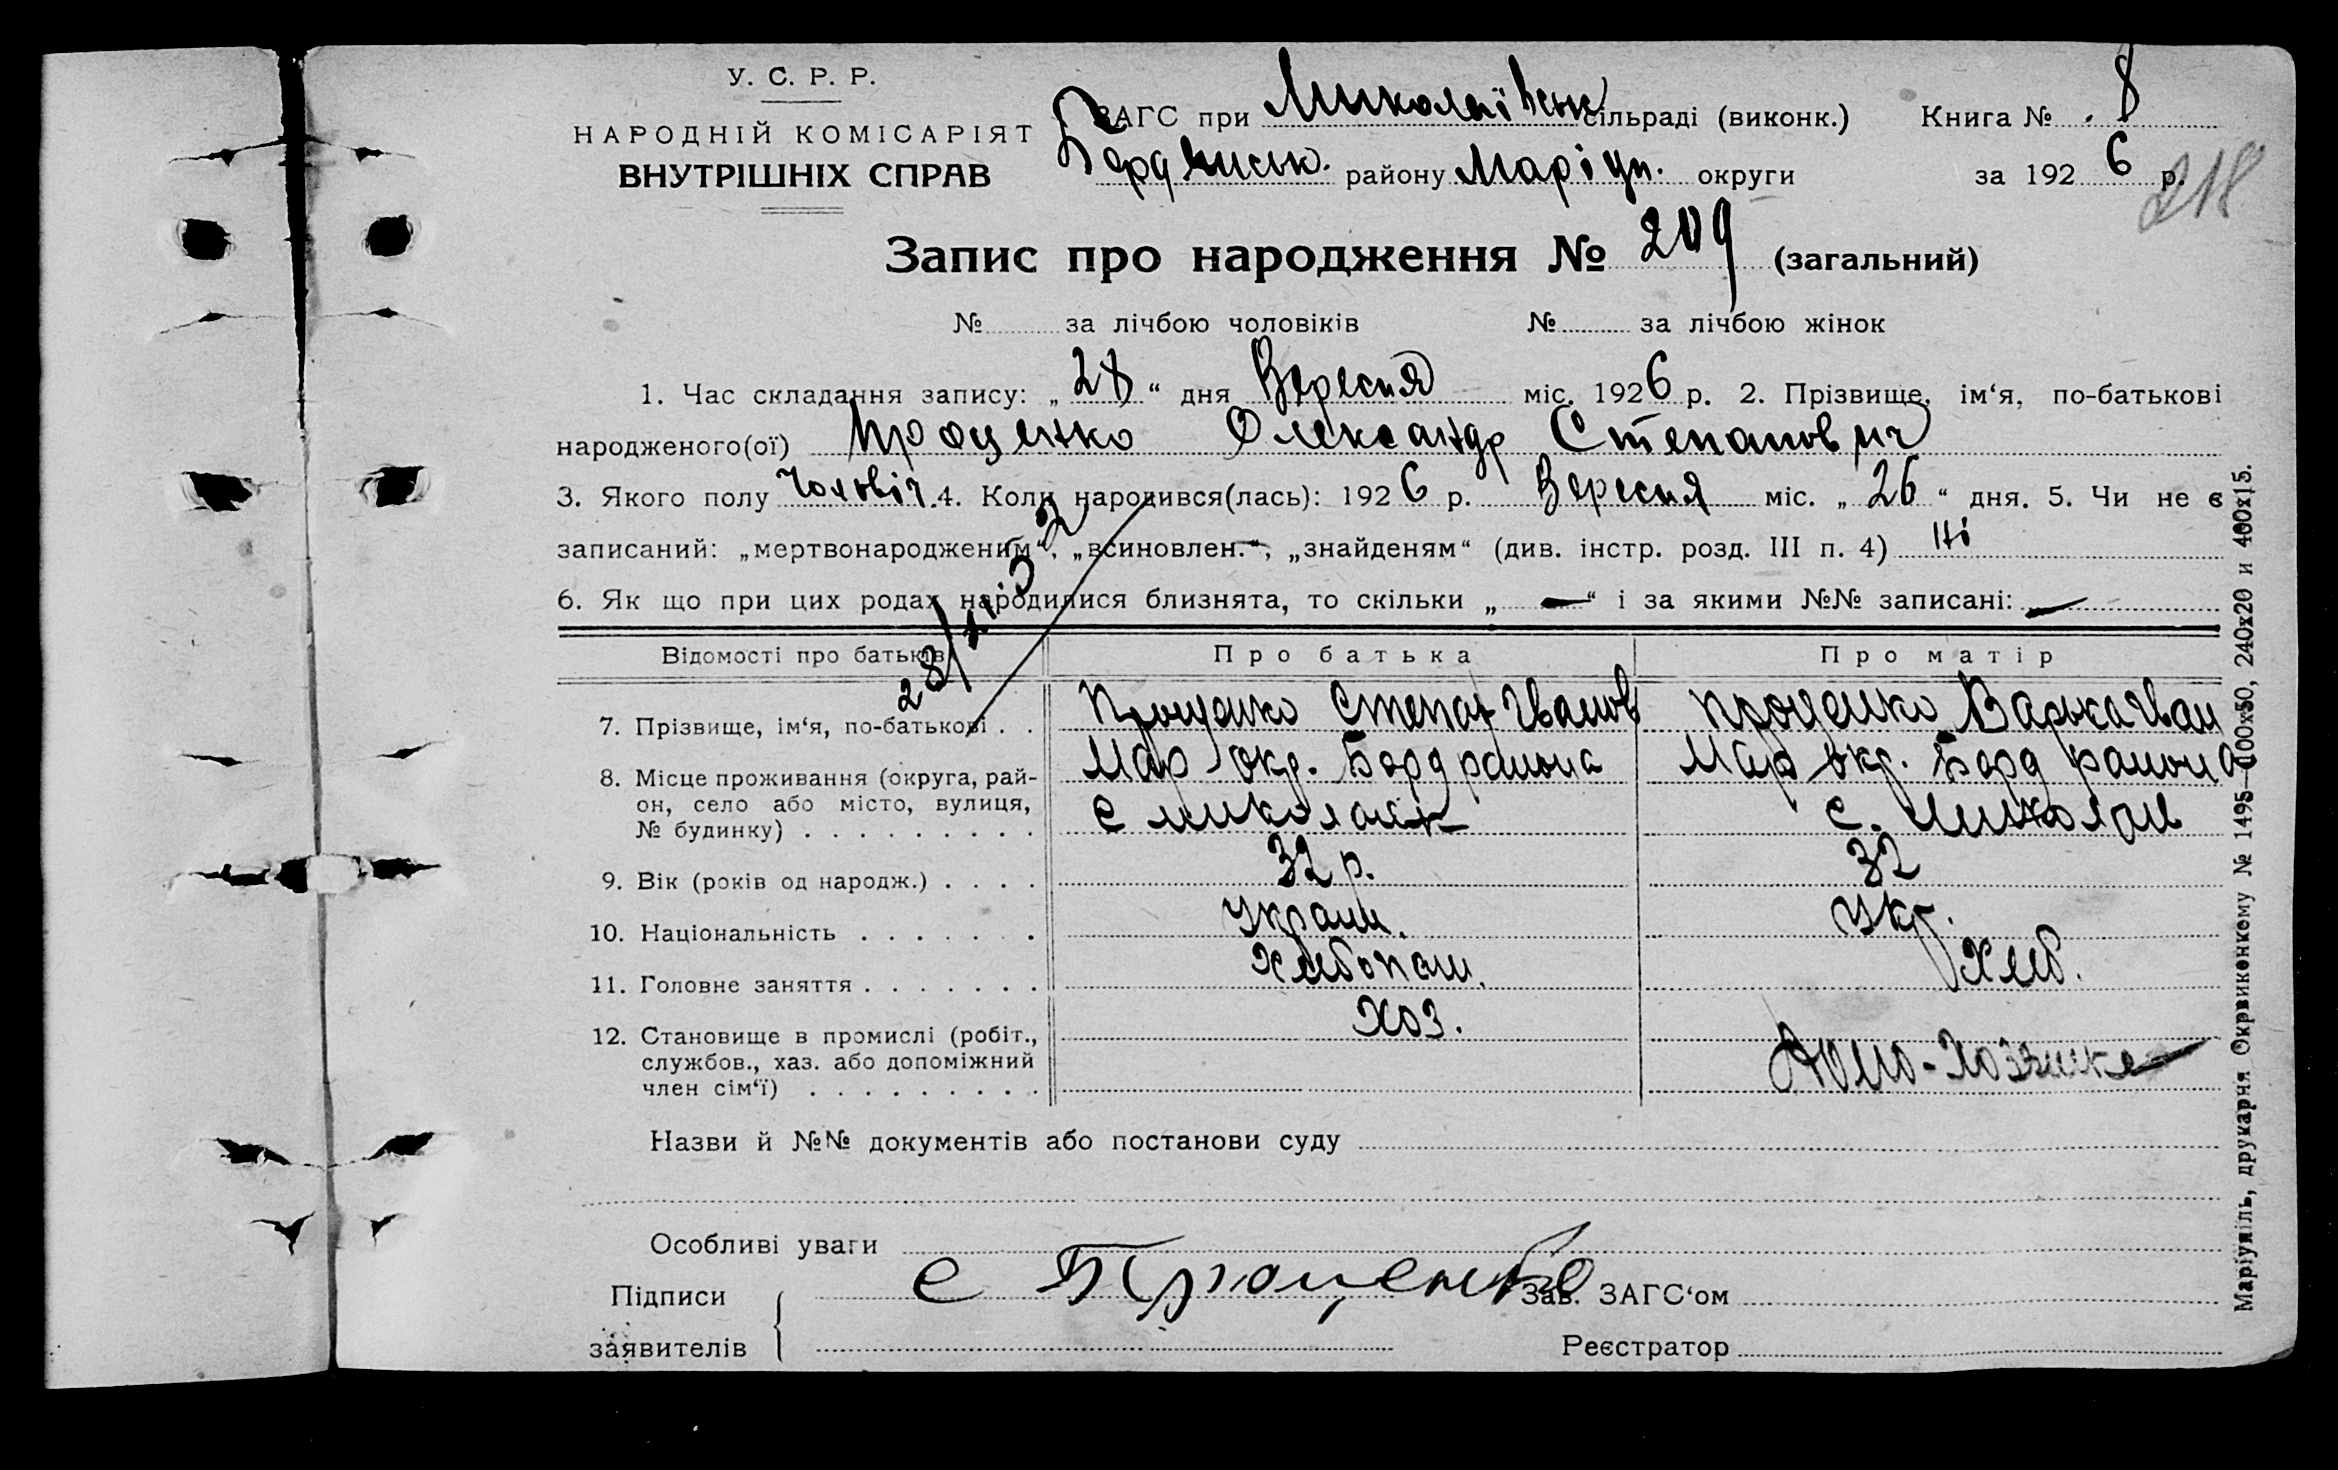 У. С. Р. Р.
НАРОДНІЙ КОМІСАРІЯТ
ВНУТРІШНІХ СПРАВ
ЗАГС при Миколаївськ сільраді (виконк.) Книга № 8
Бердянськ. району Маріуп. округи за 1926 р.
218
Запис про народження № 209 (загальний)
№ за лічбою чоловіків № за лічбою жінок
1. Час складання запису: „28“ дня Вересня міс. 1926 р. 2. Прізвище, ім‘я, по-батькові
народженого(ої) Проценко Олександр Степанович
3. Якого полу Чоловіч. 4. Коли народився(лась): 1926 р. Вересня міс. „26“ дня. 5. Чи не є
записаний: „мертвонародженим“, „всиновлен.“, „знайденям“ (див. інстр. розд. III п. 4) Ні
6. Як що при цих родах народилися близнята, то скільки „ — “ і за якими №№ записані: —
Відомості про батьків Про батька Про матір
7. Прізвище, ім‘я, по-батькові . . Проценко Степан Иванов Проценко Варька Иван
8. Місце проживання (округа, рай- Мар окр. Берд района Мар окр. Берд района
он, село або місто, вулиця,
№ будинку) . . . . . . . . . с. Миколаев
9. Вік (років од народж.) . . . . 32 р. 32
10. Національність . . . . . . . Украин. Укр.
11. Головне заняття . . . . . . . Хлебопаш. Хлеб.
12. Становище в промислі (робіт., Хоз.
службов., хаз. або допоміжний Домо-Хозяйка
член сім‘ї) . . . . . . . . .
Назви й №№ документів або постанови суду
Особливі уваги
Підписи С Проценко Зав. ЗАГС‘ом
заявителів Реєстратор
Маріупіль, друкарня Окрвиконкому № 1495—100х50, 240х20 и 400х15.